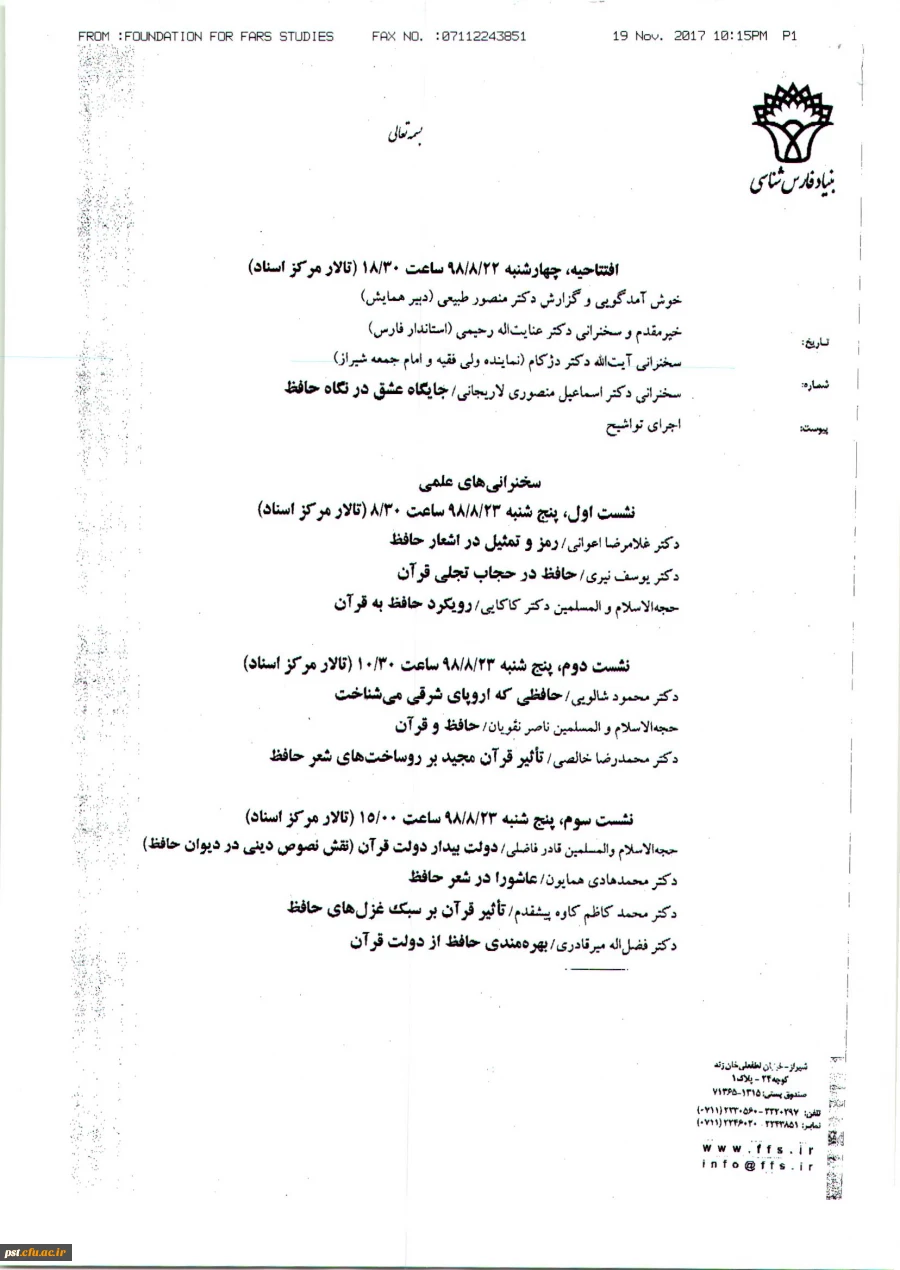 FROM :FOUNDATION FOR FARS STUDIES FAX NO. :07112243851 19 Nov. 2017 10:15PM P1
بنیاد فارس شناسی
بسمه تعالی
افتتاحیه، چهارشنبه ۹۸/۸/۲۲ ساعت ۱۸/۳۰ (تالار مرکز اسناد)
خوش آمدگویی و گزارش دکتر منصور طبیعی (دبیر همایش)
خیرمقدم و سخنرانی دکتر عنایت‌اله رحیمی (استاندار فارس)
سخنرانی آیت‌الله دکتر دژکام (نماینده ولی فقیه و امام جمعه شیراز)
سخنرانی دکتر اسماعیل منصوری لاریجانی/ جایگاه عشق در نگاه حافظ
اجرای تواشیح
تاریخ:
شماره:
پیوست:
سخنرانی‌های علمی
نشست اول، پنج شنبه ۹۸/۸/۲۳ ساعت ۸/۳۰ (تالار مرکز اسناد)
دکتر غلامرضا اعوانی/ رمز و تمثیل در اشعار حافظ
دکتر یوسف نیری/ حافظ در حجاب تجلی قرآن
حجه‌الاسلام و المسلمین دکتر کاکایی/ رویکرد حافظ به قرآن
نشست دوم، پنج شنبه ۹۸/۸/۲۳ ساعت ۱۰/۳۰ (تالار مرکز اسناد)
دکتر محمود شالویی/ حافظی که اروپای شرقی می‌شناخت
حجه‌الاسلام و المسلمین ناصر نقویان/ حافظ و قرآن
دکتر محمدرضا خالصی/ تأثیر قرآن مجید بر روساخت‌های شعر حافظ
نشست سوم، پنج شنبه ۹۸/۸/۲۳ ساعت ۱۵/۰۰ (تالار مرکز اسناد)
حجه‌الاسلام والمسلمین قادر فاضلی/ دولت بیدار دولت قرآن (نقش نصوص دینی در دیوان حافظ)
دکتر محمدهادی همایون/ عاشورا در شعر حافظ
دکتر محمد کاظم کاوه پیشقدم/ تأثیر قرآن بر سبک غزل‌های حافظ
دکتر فضل‌اله میرقادری/ بهره‌مندی حافظ از دولت قرآن
شیراز - خیابان لطفعلی‌خان زند
کوچه ۲۴ - پلاک ۱
صندوق پستی: ۱۳۱۵-۷۱۳۶۵
تلفن: ۲۲۳۰۵۶۰-۲۲۲۰۲۹۷ (۰۷۱۱)
نمابر: ۲۲۴۳۸۵۱ (۰۷۱۱)
www.ffs.ir
info@ffs.ir
pst.cfu.ac.ir